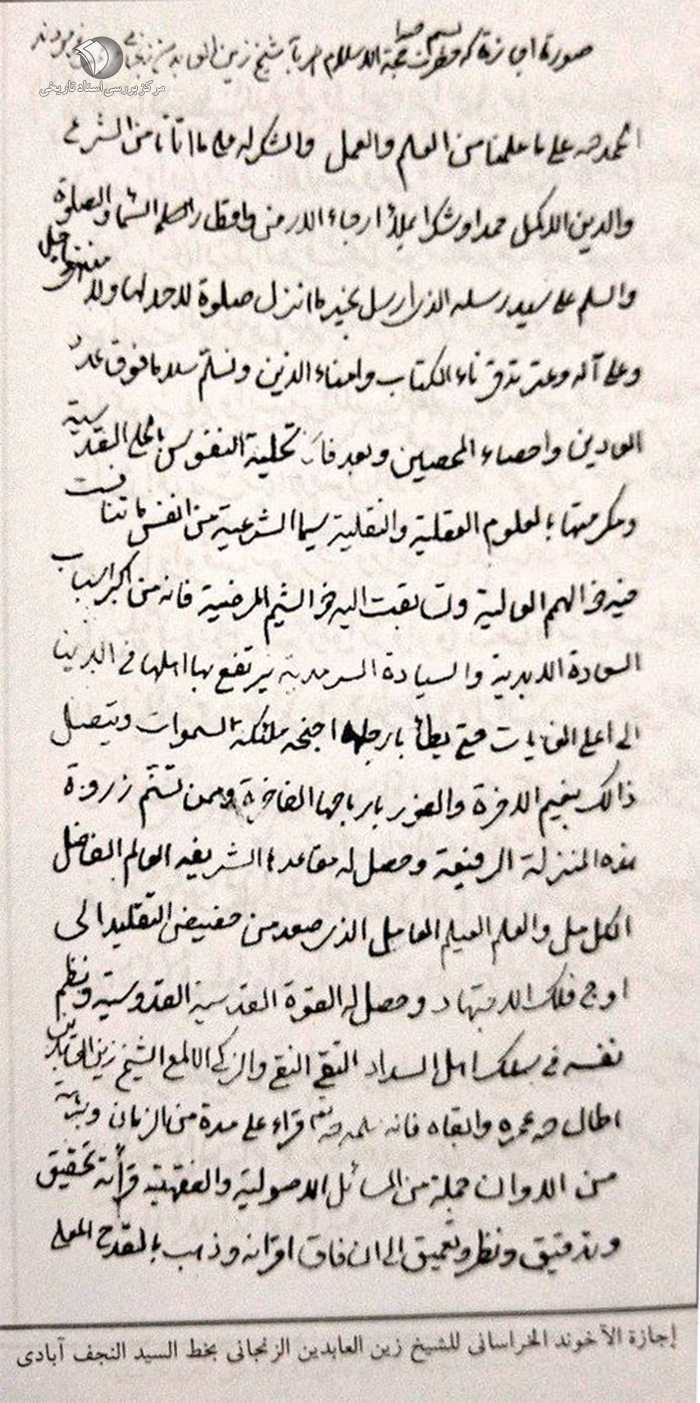 صورة اجازة که حضرت حجة الاسلام شیخ زین العابدین زنجانی فرمودند
مرکز بررسی اسناد تاریخی
الحمد لله علی ما علمنا من العلم والعمل والشکر له علی ما اتانا من الشرع
والدین الاکمل حمدا وشکرا یملأ ارجاء الارض واقطار السماء والصلوة
والسلم علی سید رسله الذی ارسل بخیر ما انزل صلوة لا حد لها ولا منتهی
وعلی آله وعترته قرناء الکتاب وامناء الدین ونسلم سلاما فوق عدد
العادین واحصاء المحصین وبعد فان تحلیة النفوس بالحلی القدسیة
ومکرمتها بالعلوم العقلیة والنقلیة سیما الشرعیة من انفس ما تنافست
فیه ذو الهمم العالیة وتسابقت الیه ذو الشیم المرضیة فانه من اکبر اسباب
السعادة الابدیة والسیادة السرمدیة یرتفع بها اهلها فی الدنیا
الی اعلی الغایات حتی یطأ بارجلها اجنحة ملئکة السموات ویتصل
ذالک بنعیم الاخرة والفوز بارباحها الفاخرة وممن تسنم زروة
هذه المنزلة الرفیعة وحصل له مقاعدها الشریفه العالم الفاضل
الکامل والعلم العیلم العامل الذی صعد من حضیض التقلید الی
اوج فلک الاجتهاد وحصل له القوة القدسیة القدوسیة ونظم
نفسه فی سلک اهل السداد التقی النقی والزکی الالمع الشیخ زین العابدین
اطال الله عمره وابقاه فانه سلمه الله قراء علی مدة من الزمان
من الاوان جملة من المسائل الاصولیة والفقهیة قرأنة تحقیق
وتدقیق ونظر وتعمیق الی ان فاق اقرانه وذهب بالقدح المعلی
إجازة الآخوند الخراسانی للشیخ زین العابدین الزنجانی بخط السید النجف آبادی